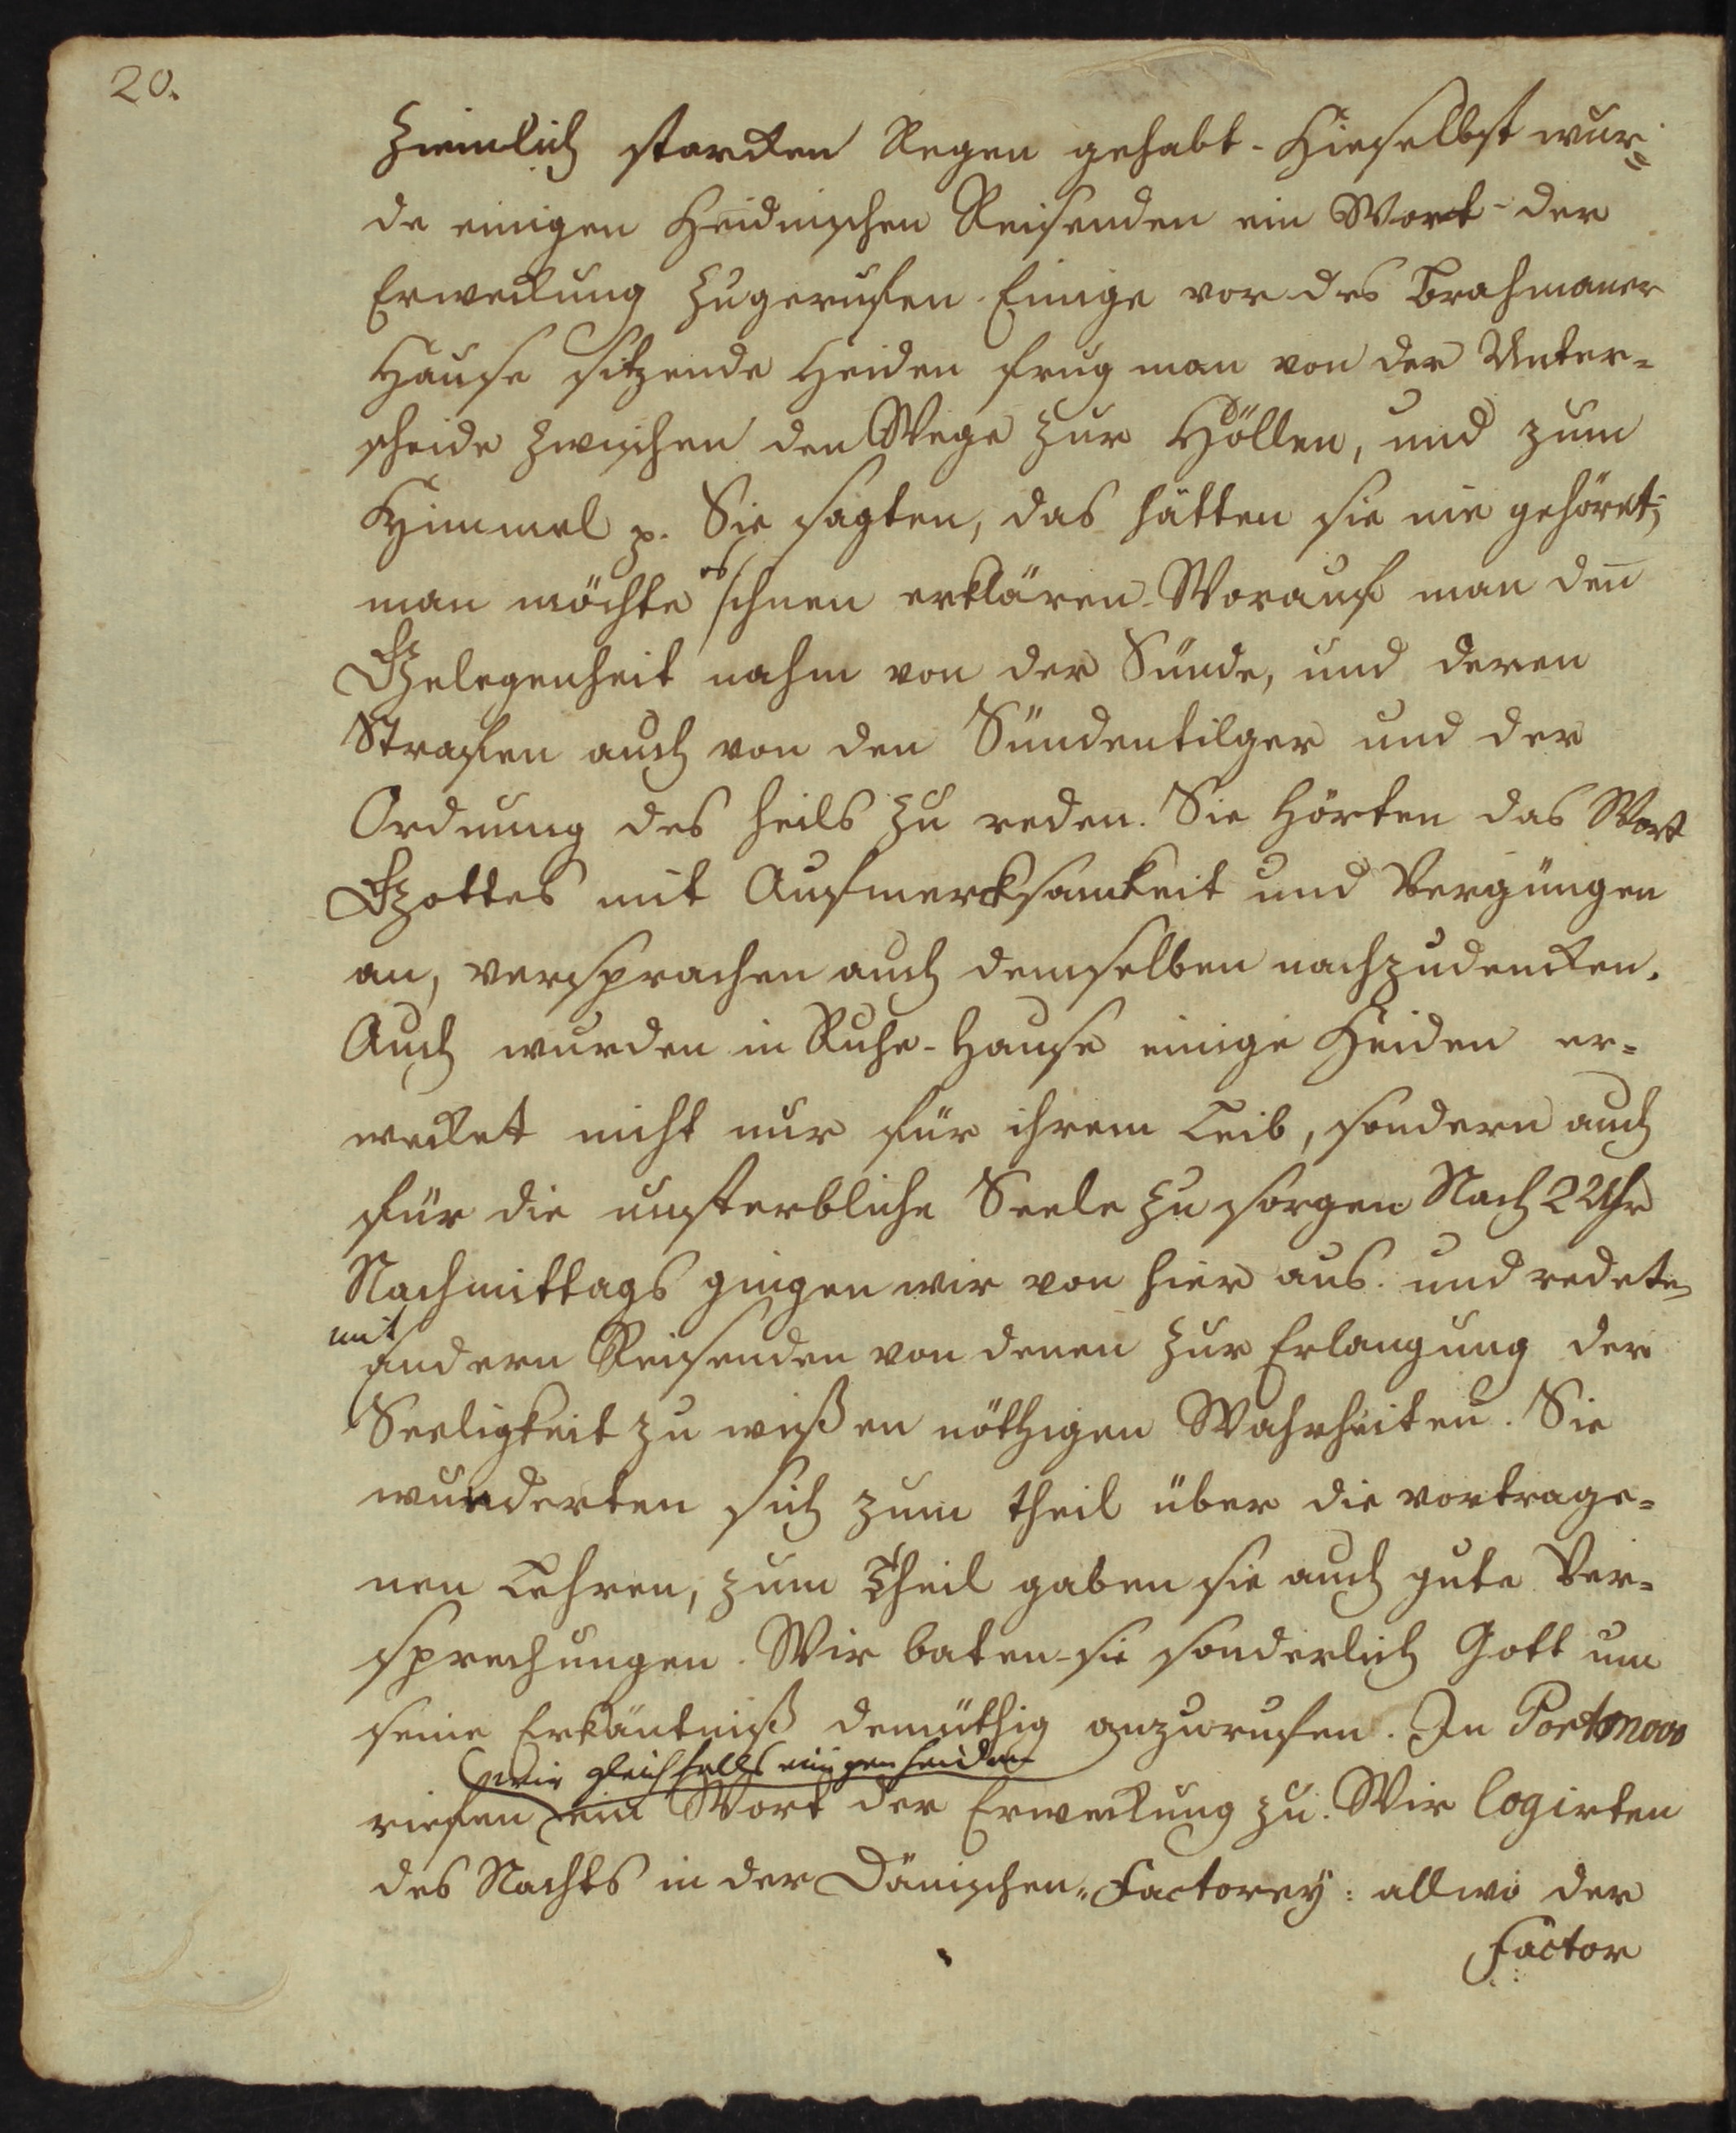 20.
Ziemlich starcken Regen gehabt. Hieselbst wur=
de einigen Heidnischen Reisenden ein Wort der
Erweckung zugerufen. Einige vor des Brahmaner
Hause sitzende Heiden frug man von der Unter=
scheide zwischen den Wege zur Höllen, und zum
Himmel p. Sie sagten, das hätten sie nie gehöret;
man möchte es ihnen erklären. Worauf man deñ
Gelegenheit nahm von der Sünde, und deren
Strafen auch von den Sündentilger und der
Ordnung des Heils zu reden. Sie hörten das Wort
Gottes mit Aufmercksamkeit und Vergüngen
an, versprachen auch demselben nachzudencken.
Auch wurden in Ruhe-Hause einige Heiden er=
wecket nicht nur für ihrem Leib, sondern auch
für die unsterbliche Seele zu sorgen Nach 2 Uhr
Nachmittags gingen wir von hier aus. und redeten
mit andern Reisenden von denen zur Erlangung der
Seeligkeit zu wißen nöthigen Wahrheiten. Sie
wunderten sich zum theil über die vortrage=
nen Lehren, zum Theil gaben sie auch gute Ver=
sprechungen. Wir baten sie sonderlich Gott um
seine Erkäntniß demüthig anzurufen. In Portonovo
riefen wir gleichfalls einigen Heiden ein Wort der Erweckung zu. Wir logirten
des Nachts in der Dänischen Factorey: allwo der
Factor